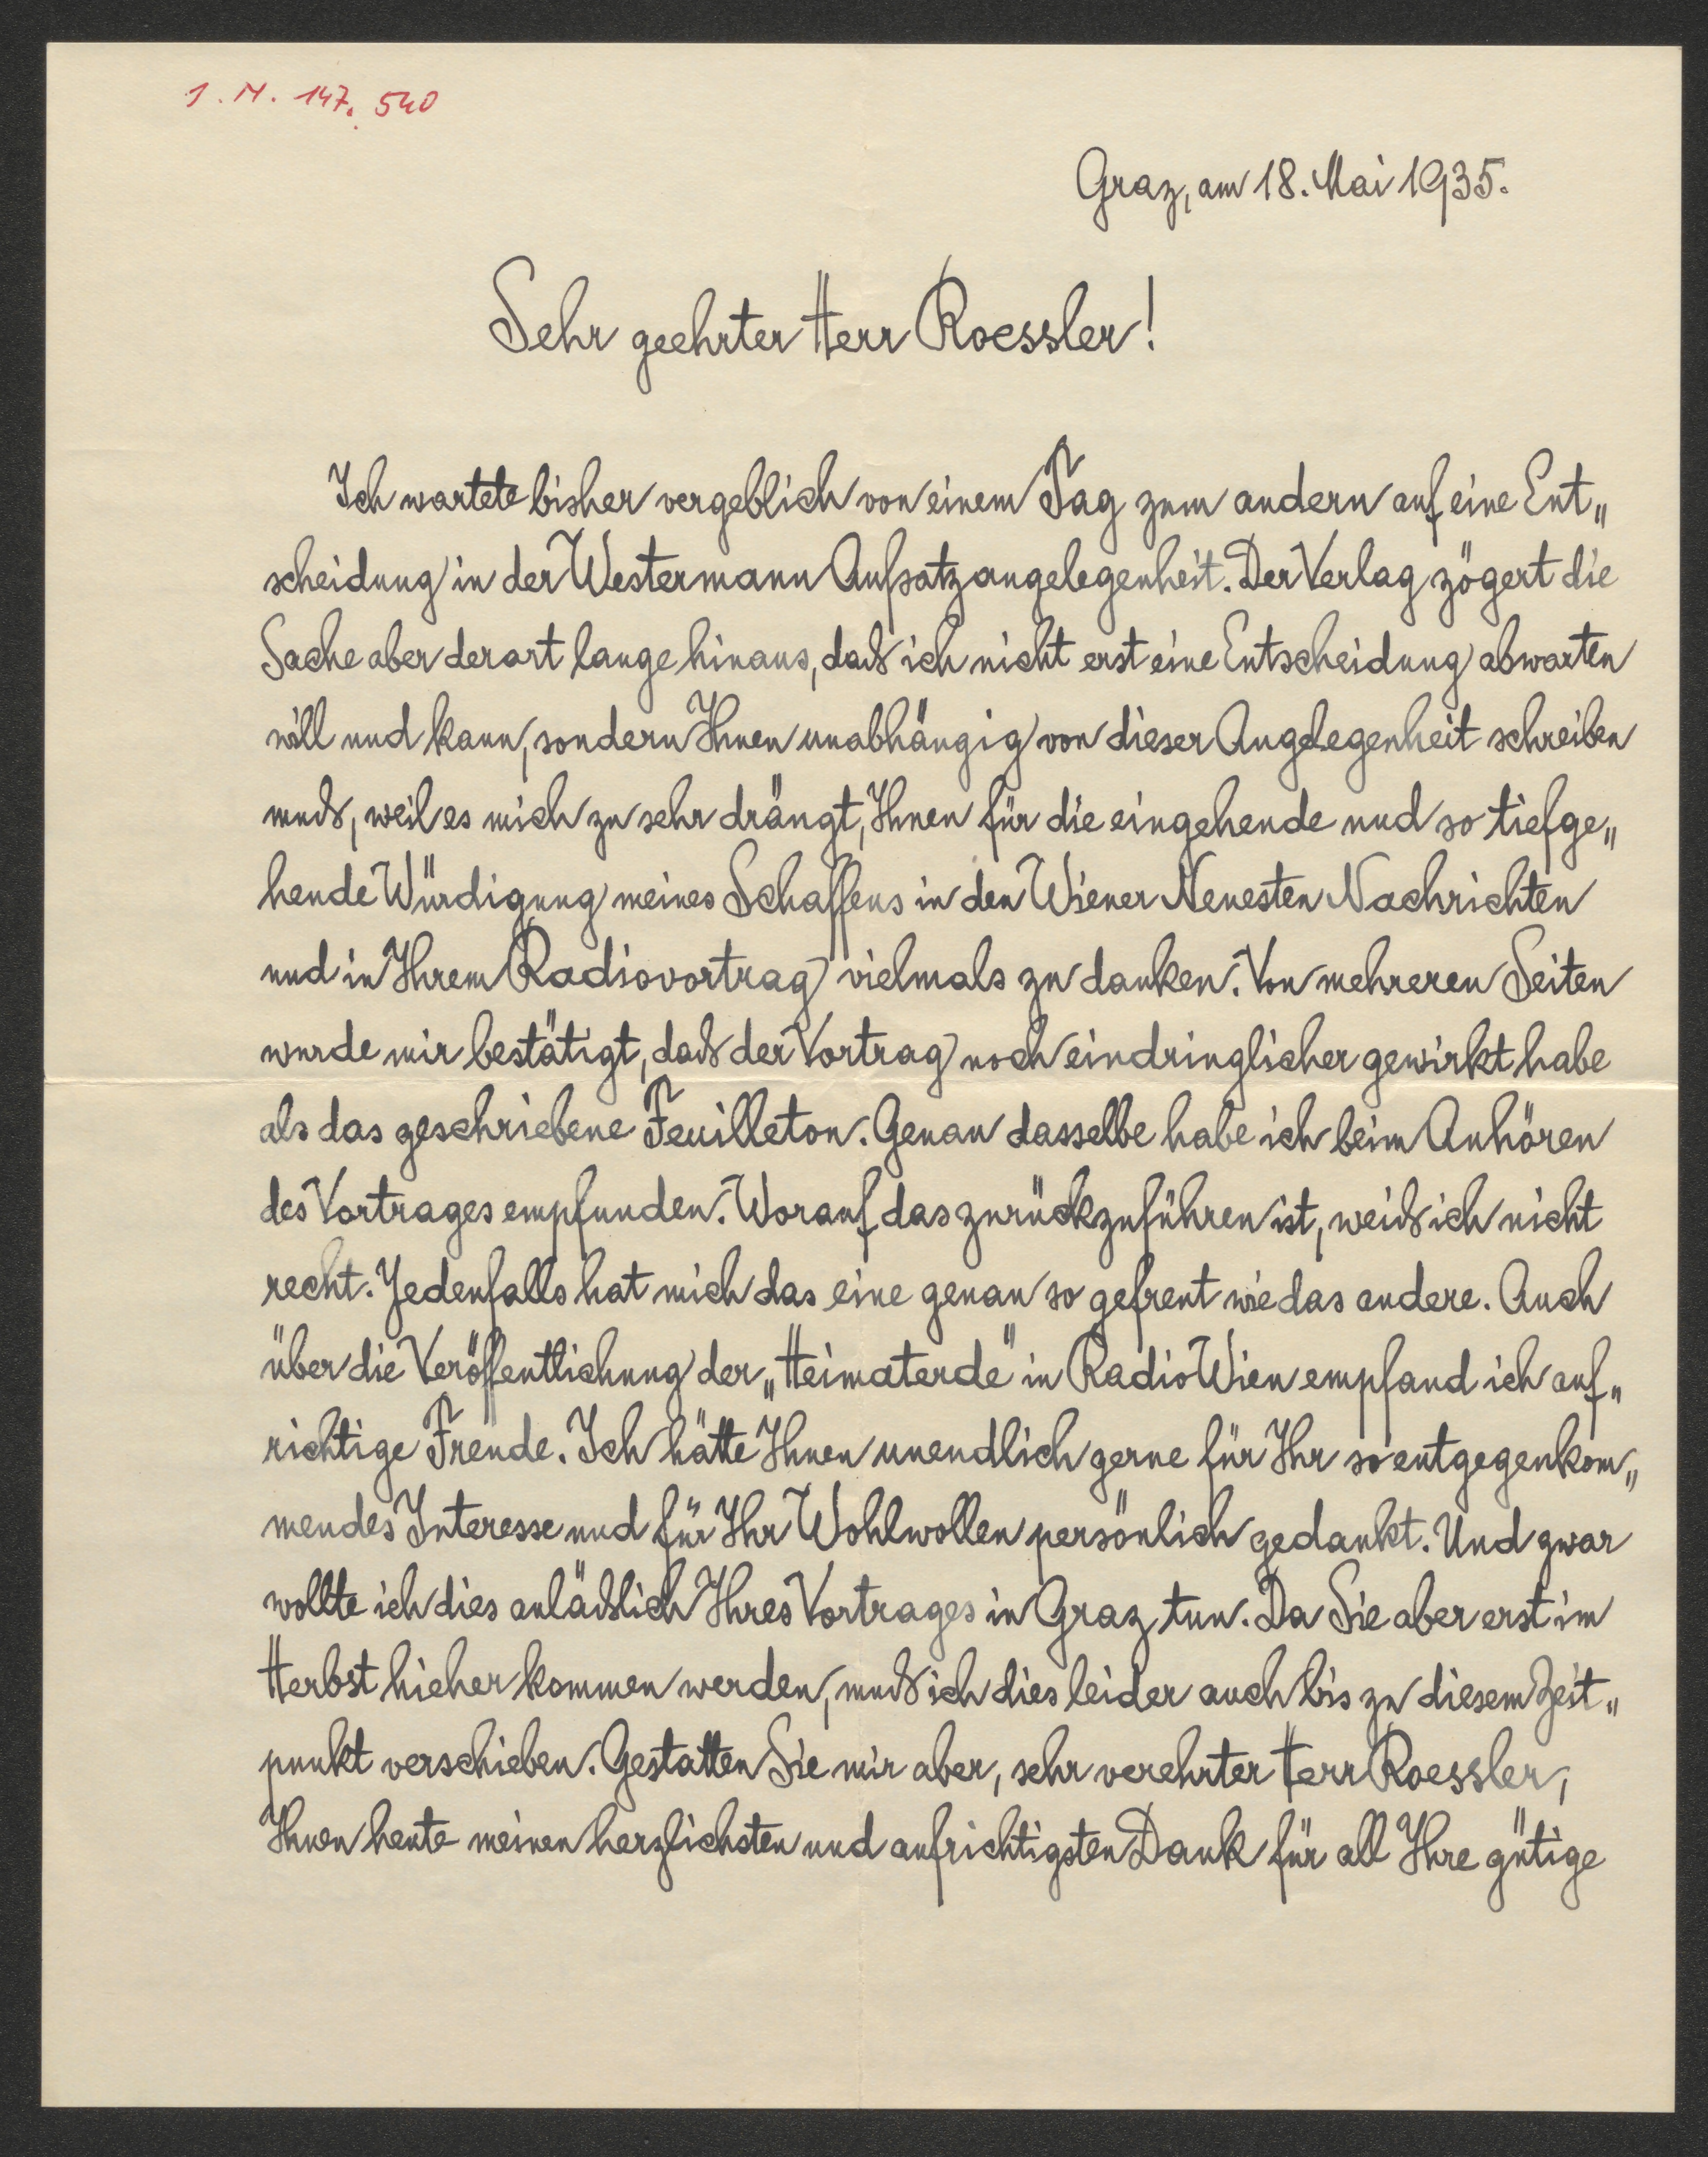 J. N. 147.540
Graz, am 18. Mai 1935.
Sehr geehrter Herr Roessler!
Ich wartete bisher vergeblich von einem Tag zum andern auf eine Ent„
scheidung in der Westermann Aufsatzangelegenheit. Der Verlag zögert die
Sache aber derart lange hinaus, daß ich nicht erst eine Entscheidung abwarten
will und kann, sondern Ihnen unabhängig von dieser Angelegenheit schreiben
muß, weil es mich zu sehr drängt, Ihnen für die eingehende und so tiefge„
hende Würdigung meines Schaffens in den Wiener Neuesten Nachrichten
und in Ihrem Radiovortrag vielmals zu danken. Von mehreren Seiten
wurde mir bestätigt, daß der Vortrag noch eindringlicher gewirkt habe
als das geschriebene Feuilleton. Genau dasselbe habe ich beim Anhören
des Vortrages empfunden. Worauf das zurückzuführen ist, weiß ich nicht
recht. Jedenfalls hat mich das eine genau so gefreut wie das andere. Auch
über die Veröffentlichung der „Heimaterde" in Radio Wien empfand ich auf„
richtige Freude. Ich hätte Ihnen unendlich gerne für Ihr so entgegenkom„
mendes Interesse und für Ihr Wohlwollen persönlich gedankt. Und zwar
wollte ich dies anläßlich Ihres Vortrages in Graz tun. Da Sie aber erst im
Herbst hieher kommen werden, muß ich dies leider auch bis zu diesem Zeit„
punkt verschieben. Gestatten Sie mir aber, sehr verehrter Herr Roessler,
Ihnen heute meinen herzlichsten und aufrichtigsten Dank für all Ihre gütige